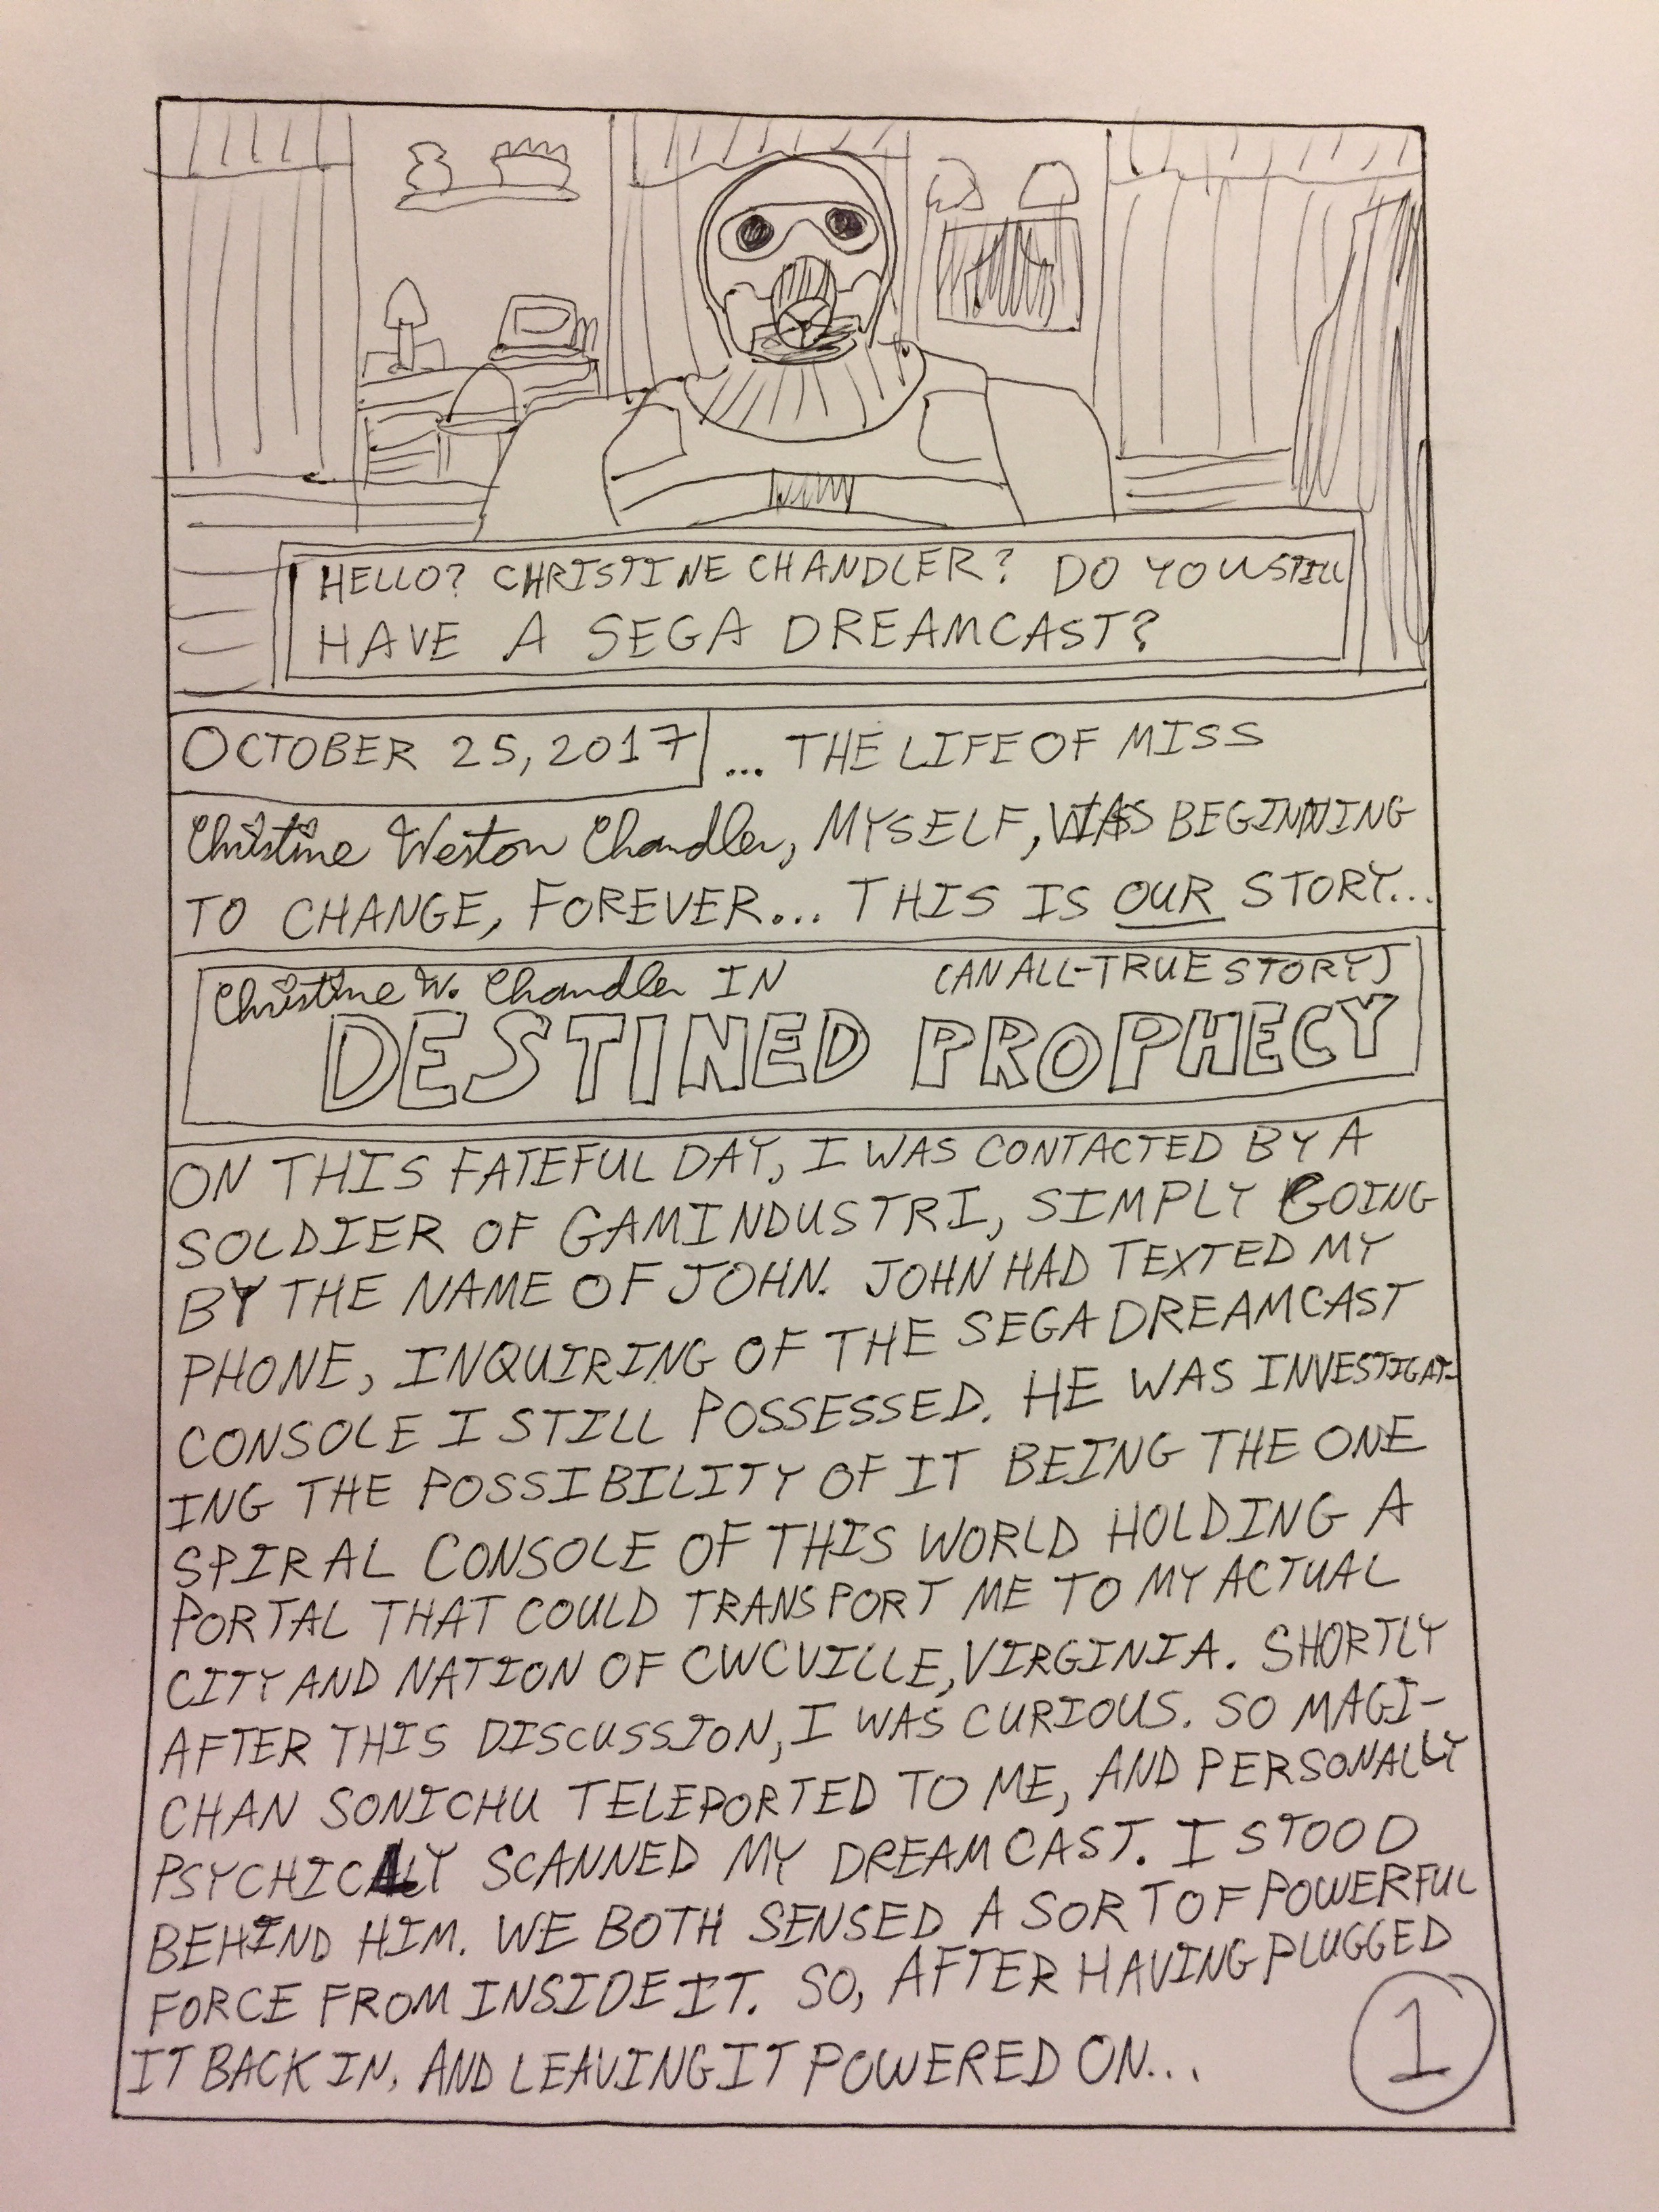 HELLO? CHRISTINE CHANDLER? DO YOU STILL
HAVE A SEGA DREAMCAST?
OCTOBER 25, 2017 ... THE LIFE OF MISS
Christine Weston Chandler, MYSELF, WAS BEGINNING
TO CHANGE, FOREVER... THIS IS OUR STORY...
Christine W. Chandler IN (AN ALL-TRUE STORY)
DESTINED PROPHECY
ON THIS FATEFUL DAY, I WAS CONTACTED BY A
SOLDIER OF GAMINDUSTRI, SIMPLY GOING
BY THE NAME OF JOHN. JOHN HAD TEXTED MY
PHONE, INQUIRING OF THE SEGA DREAMCAST
CONSOLE I STILL POSSESSED. HE WAS INVESTIGAT-
ING THE POSSIBILITY OF IT BEING THE ONE
SPIRAL CONSOLE OF THIS WORLD HOLDING A
PORTAL THAT COULD TRANSPORT ME TO MY ACTUAL
CITY AND NATION OF CWCVILLE, VIRGINIA. SHORTLY
AFTER THIS DISCUSSION, I WAS CURIOUS. SO MAGI-
CHAN SONICHU TELEPORTED TO ME, AND PERSONALLY
PSYCHICLY SCANNED MY DREAMCAST. I STOOD
BEHIND HIM. WE BOTH SENSED A SORT OF POWERFUL
FORCE FROM INSIDE IT. SO, AFTER HAVING PLUGGED
IT BACK IN, AND LEAVING IT POWERED ON...
1